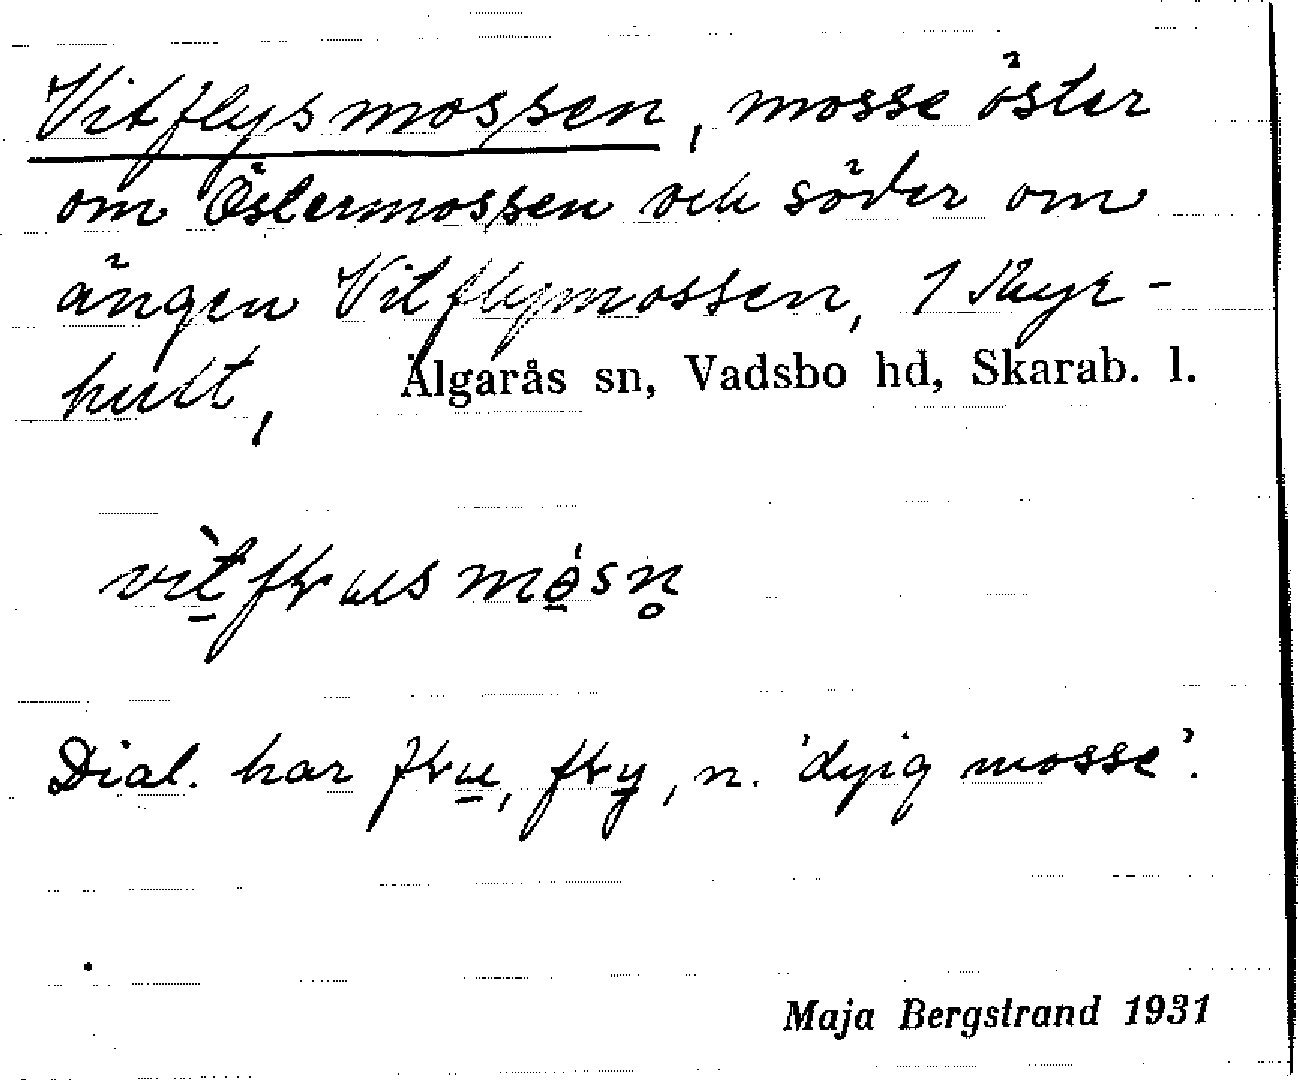 Vitflysmossen, mosse öster
om Östermossen och söder om
ängen Vitflymossen, 1 Skyr-
hult, Älgarås sn, Vadsbo hd, Skarab. l.
Dial. har n. 'dyig mosse'.
Maja Bergstrand 1931